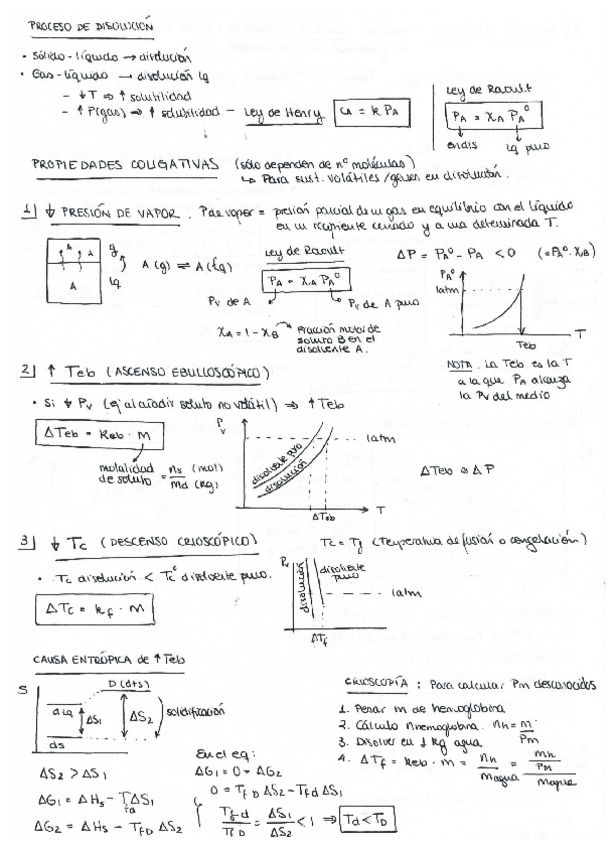 PROCESO DE DISOLUCIÓN
• Sólido - líquido → disolución
• Gas - líquido → disolución lq
- ↓T ⇒ ↑ solubilidad
- ↑P(gas) ⇒ ↑ solubilidad - Ley de Henry CA = k PA
Ley de Raoult
PA = XA PA⁰
endis lq puro
PROPIEDADES COLIGATIVAS (sólo dependen de nº moléculas)
↳ Para sust. volátiles/gases en disolución.
1] ↓ PRESIÓN DE VAPOR. P de vapor = presión parcial de un gas en equilibrio con el líquido
en un recipiente cerrado y a una determinada T.
A A g
A lq
A (g) ⇌ A (lq)
Ley de Raoult
PA = XA PA⁰
Pv de A Pv de A puro
XA = 1 - XB → Fracción molar de
soluto B en el
disolvente A.
ΔP = PA⁰ - PA < 0 (= PA⁰. XB)
PA⁰
1atm
Teb T
NOTA. La Teb es la T
a la que PA alcanza
la Pv del medio
2] ↑ Teb (ASCENSO EBULLOSCÓPICO)
• Si ↓ Pv (ej al añadir soluto no volátil) ⇒ ↑ Teb
ΔTeb = Keb · m
molalidad
de soluto = ns (mol) / md (kg)
Pv
1atm
disolvente puro
disolución
ΔTeb T
ΔTeb ≈ ΔP
3] ↓ Tc (DESCENSO CRIOSCÓPICO) Tc = Tf (Temperatura de fusión o congelación)
• Tc disolución < Tc⁰ disolvente puro.
ΔTc = kf · m
Pv
disolvente
puro
disolución
1atm
ΔTf
CAUSA ENTRÓPICA de ↑ Teb
S
D (d+s)
d lq
ΔS1
ΔS2
solidificación
ds
ΔS2 > ΔS1
ΔG1 = ΔHs - Tfd ΔS1
ΔG2 = ΔHs - TfD ΔS2
En el eq:
ΔG1 = 0 = ΔG2
0 = TfD ΔS2 - Tfd ΔS1
Tfd / TfD = ΔS1 / ΔS2 < 1 ⇒ Td < TD
CRIOSCOPÍA : Para calcular Pm desconocidos
1. Pesar m de hemoglobina
2. Cálculo nhemoglobina. nh = m / Pm
3. Disolver en 1 kg agua
4. ΔTf = keb · m = nh / magua = mh / Pm / magua